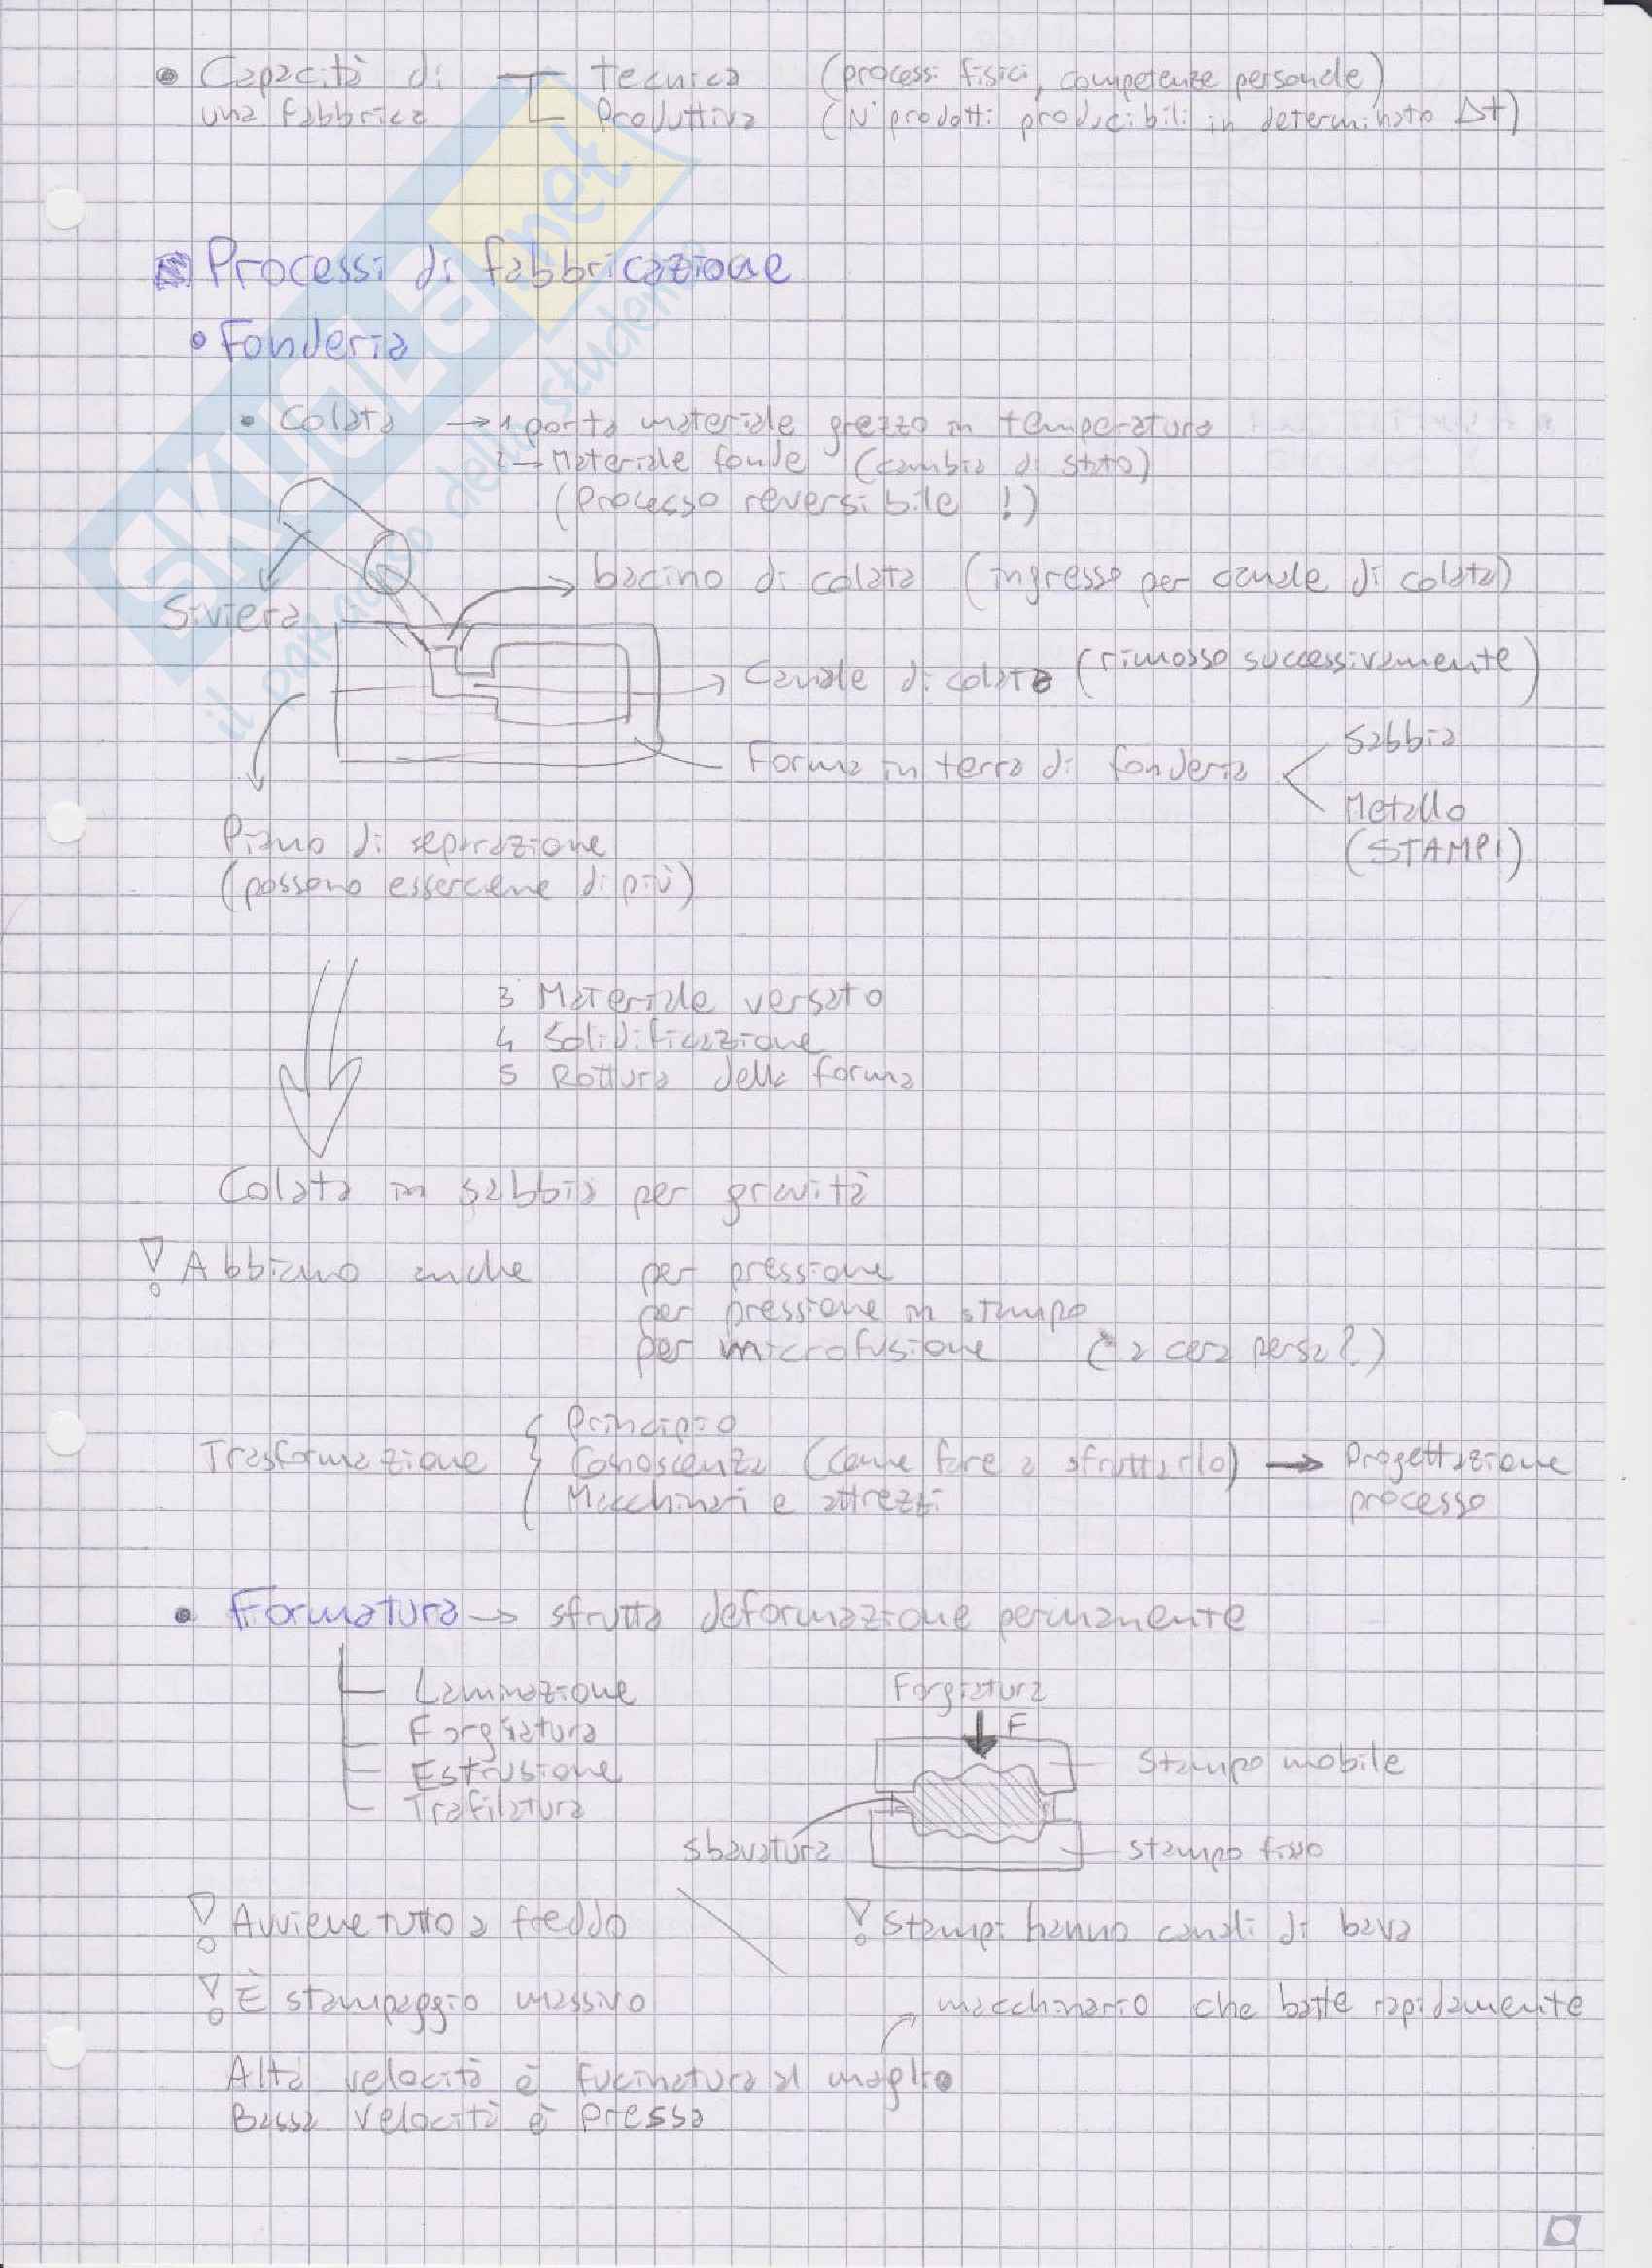 • Capacità di Tecnica (processi fisici, competenze personale)
una fabbrica Produttiva (N° prodotti producibili in determinato Δt)
Processi di fabbricazione
• Fonderia
• Colata → 1 porto materiale grezzo in temperatura
2 → Materiale fonde (cambio di stato)
(Processo reversibile !)
bacino di colata (ingresso per canale di colata)
Siviera
Canale di colata (rimosso successivamente)
Sabbia
Forma in terra di fonderia
Metallo
(STAMPI)
Piano di separazione
(possono essercene di più)
3 Materiale versato
4 Solidificazione
5 Rottura della forma
Colata in sabbia per gravità
! Abbiamo anche per pressione
per pressione in stampo
per microfusione (° a cera persa?)
Principio
Trasformazione Conoscenza (come fare a sfruttarlo) → Progettazione
Macchinari e attrezzi processo
• Formatura → sfrutta deformazione permanente
Laminazione Forgiatura
Forgiatura F
Estrusione Stampo mobile
Trafilatura
Sbavatura stampo fisso
! Avviene tutto a freddo ! Stampi hanno canali di bava
! È stampaggio massivo macchinario che batte rapidamente
Alta velocità è fucinatura al maglio
Bassa velocità è pressa
SKUOLA.net
il paradiso dello studente